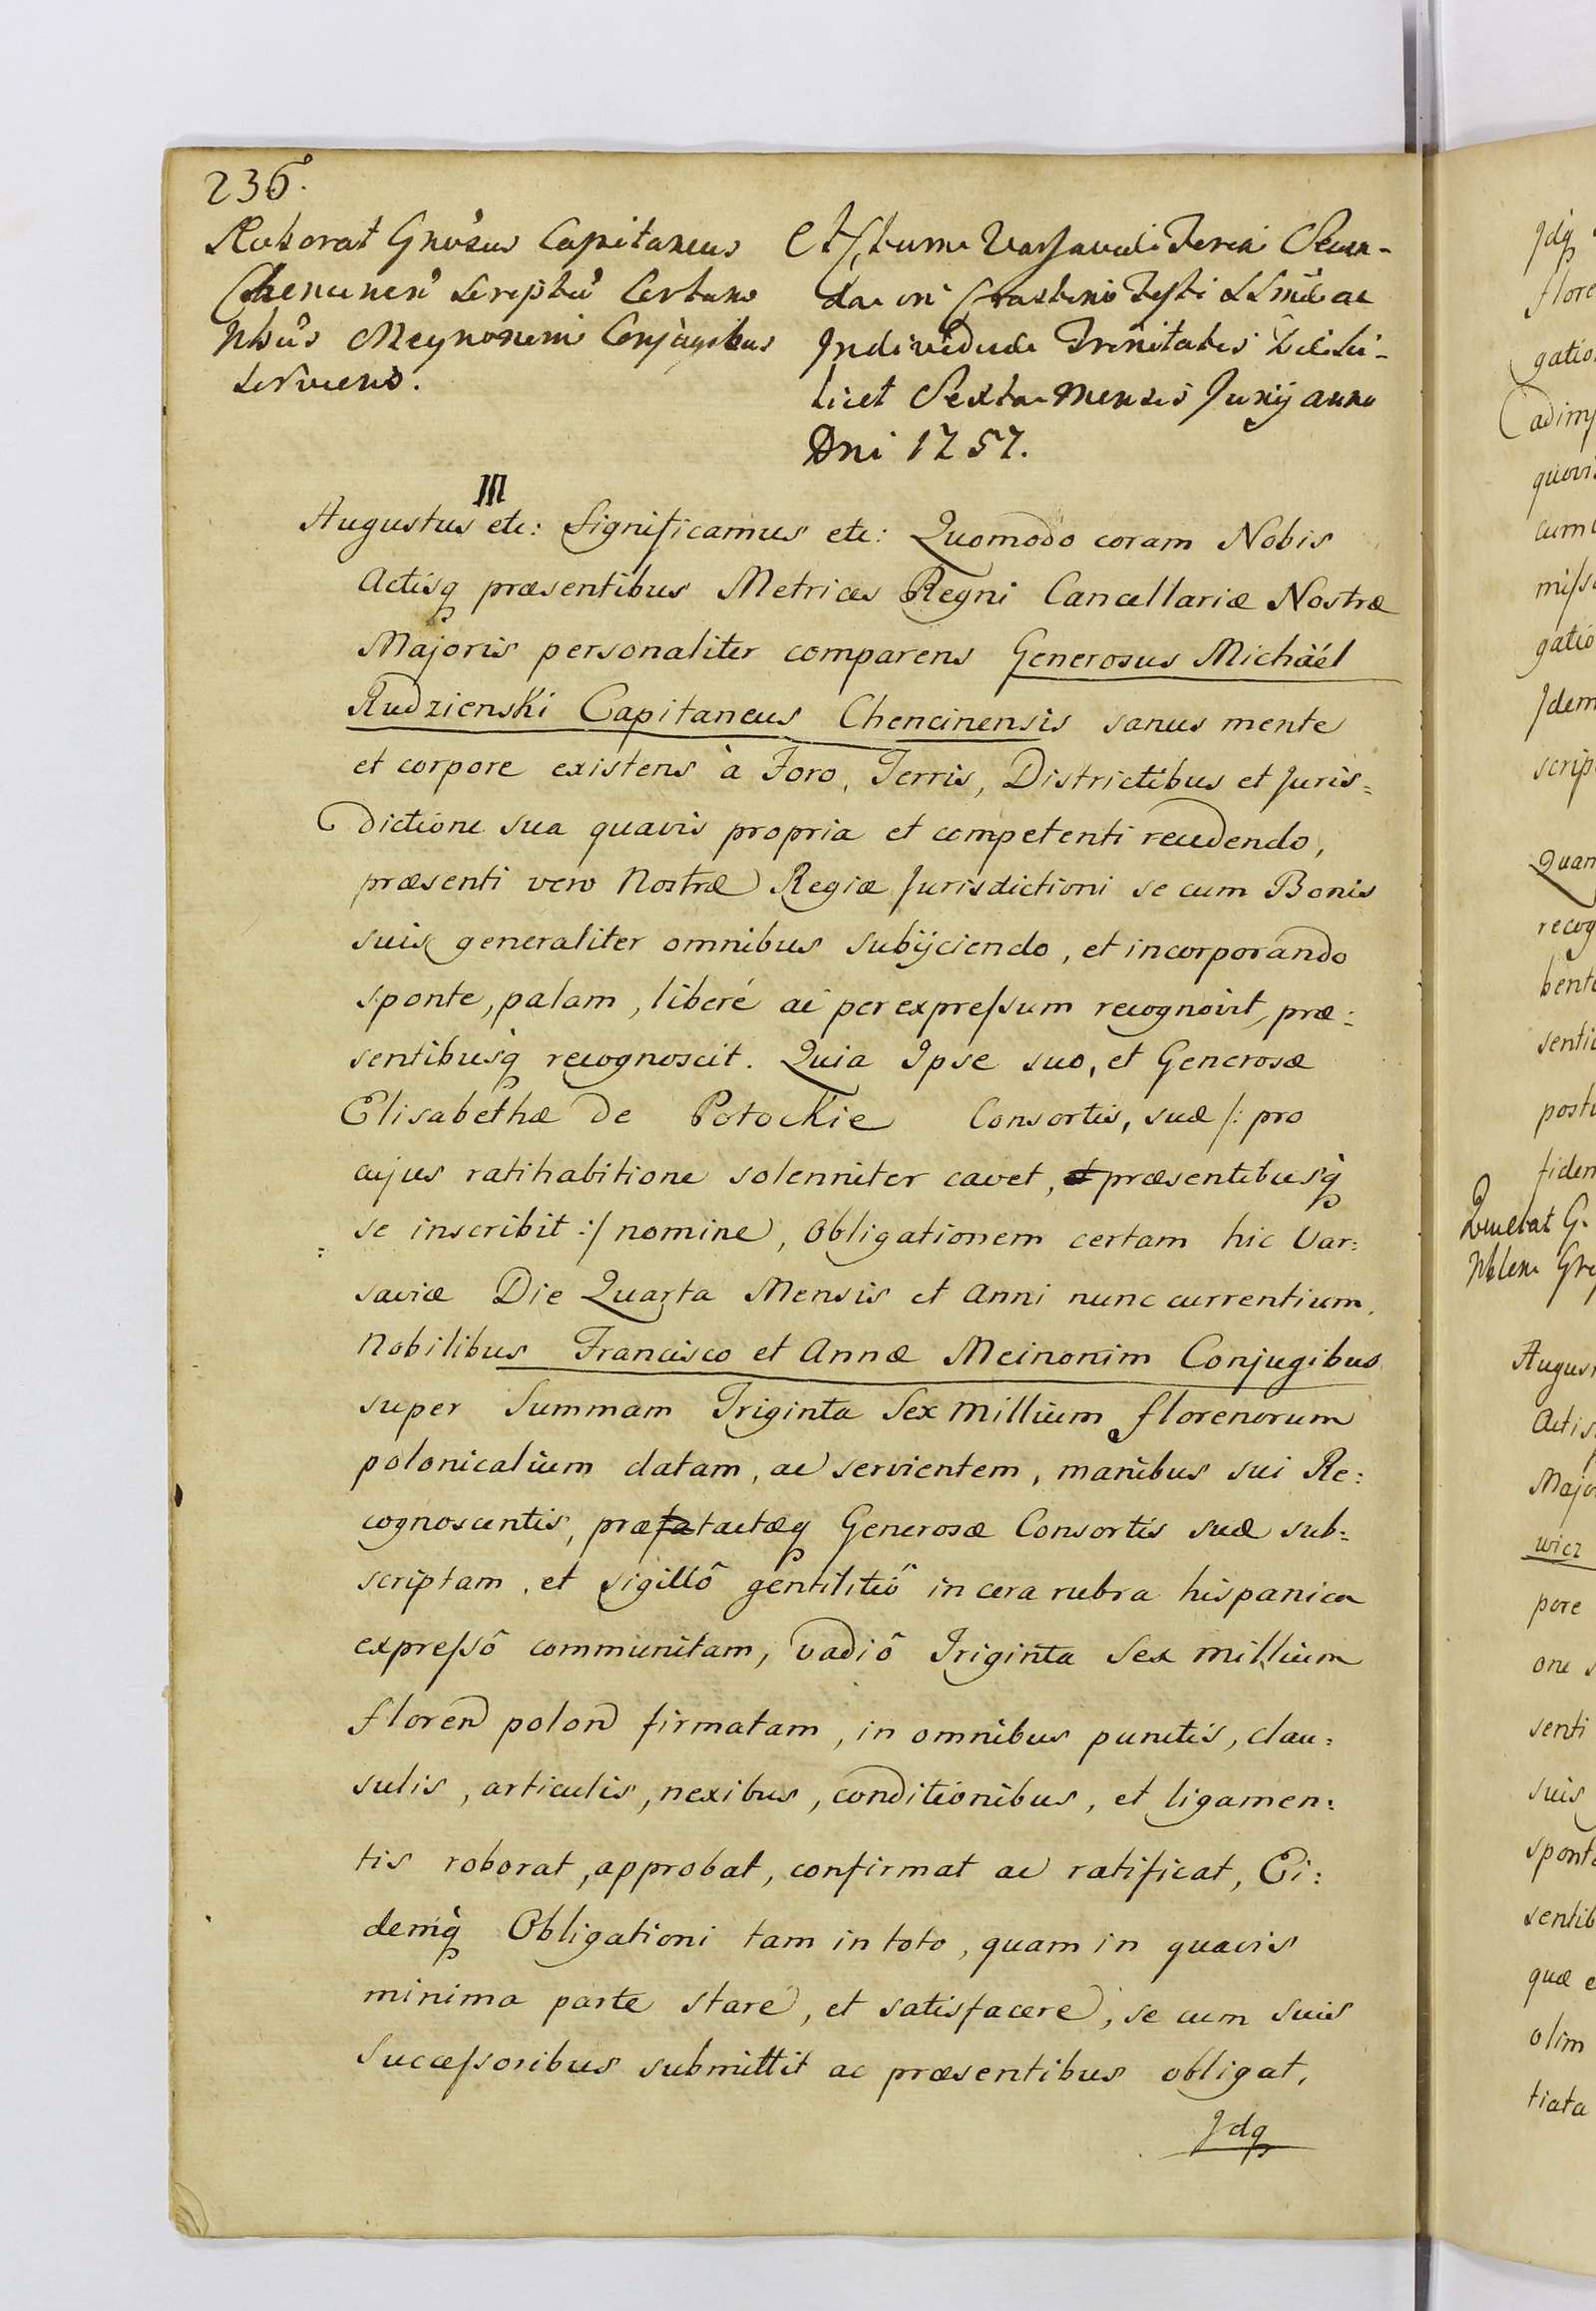 236.
Roborat Gnosus Capitaneus
Chencinen Scriptū Certum
Nbūs Meynonim Conjugibus
serviens.
Actum Varsaviæ Feria Secun-
da in Crastino Festi SSmæ ac
Individuæ Trinitatis Scili-
licet Sexta Mensis Junij anno
Dni 1757.
III
Augustus etc: Significamus etc: Quomodo coram Nobis
Actisq præsentibus Metrices Regni Cancellariæ Nostræ
Majoris personaliter comparens Generosus Michäél
Rudzienski Capitaneus Chencinensis sanus mente
et corpore existens à Foro, Terris, Districtibus et Juris=
dictione sua quavis propria et competenti recedendo,
præsenti vero Nostræ Regiæ Jurisdictioni se cum Bonis
suis generaliter omnibus subijciendo, et incorporando
sponte, palam, liberé ac per expreſsum recognovit, præ=
sentibusq recognoscit. Quia Ipse suo, et Generosæ
Elisabethæ de Potockie Consortis, suæ /: pro
cujus ratihabitione solenniter cavet, et præsentibusq
se inscribit :/ nomine, Obligationem certam hic Var=
saviæ Die Quarta Mensis et Anni nunc currentium.
Nobilibus Francisco et Annæ Meinonim Conjugibus
super Summam Triginta Sex Millium florenorum
polonicalium datam, ac servientem, manibus sui Re=
cognoscentis, præfatactæq Generosæ Consortis suæ sub=
scriptam, et sigillô gentilitiô in cera rubra hispanica
expreſsô communitam, vadiô Triginta Sex millium
floren polon firmatam, in omnibus punctis, clau=
sulis, articulis, nexibus, conditionibus, et ligamen=
tis roborat, approbat, confirmat ac ratificat, Ei=
demq Obligationi tam in toto, quam in quavis
minima parte stare, et satisfacere, se cum suis
Succeſsoribus submittit ac præsentibus obligat,
Idq